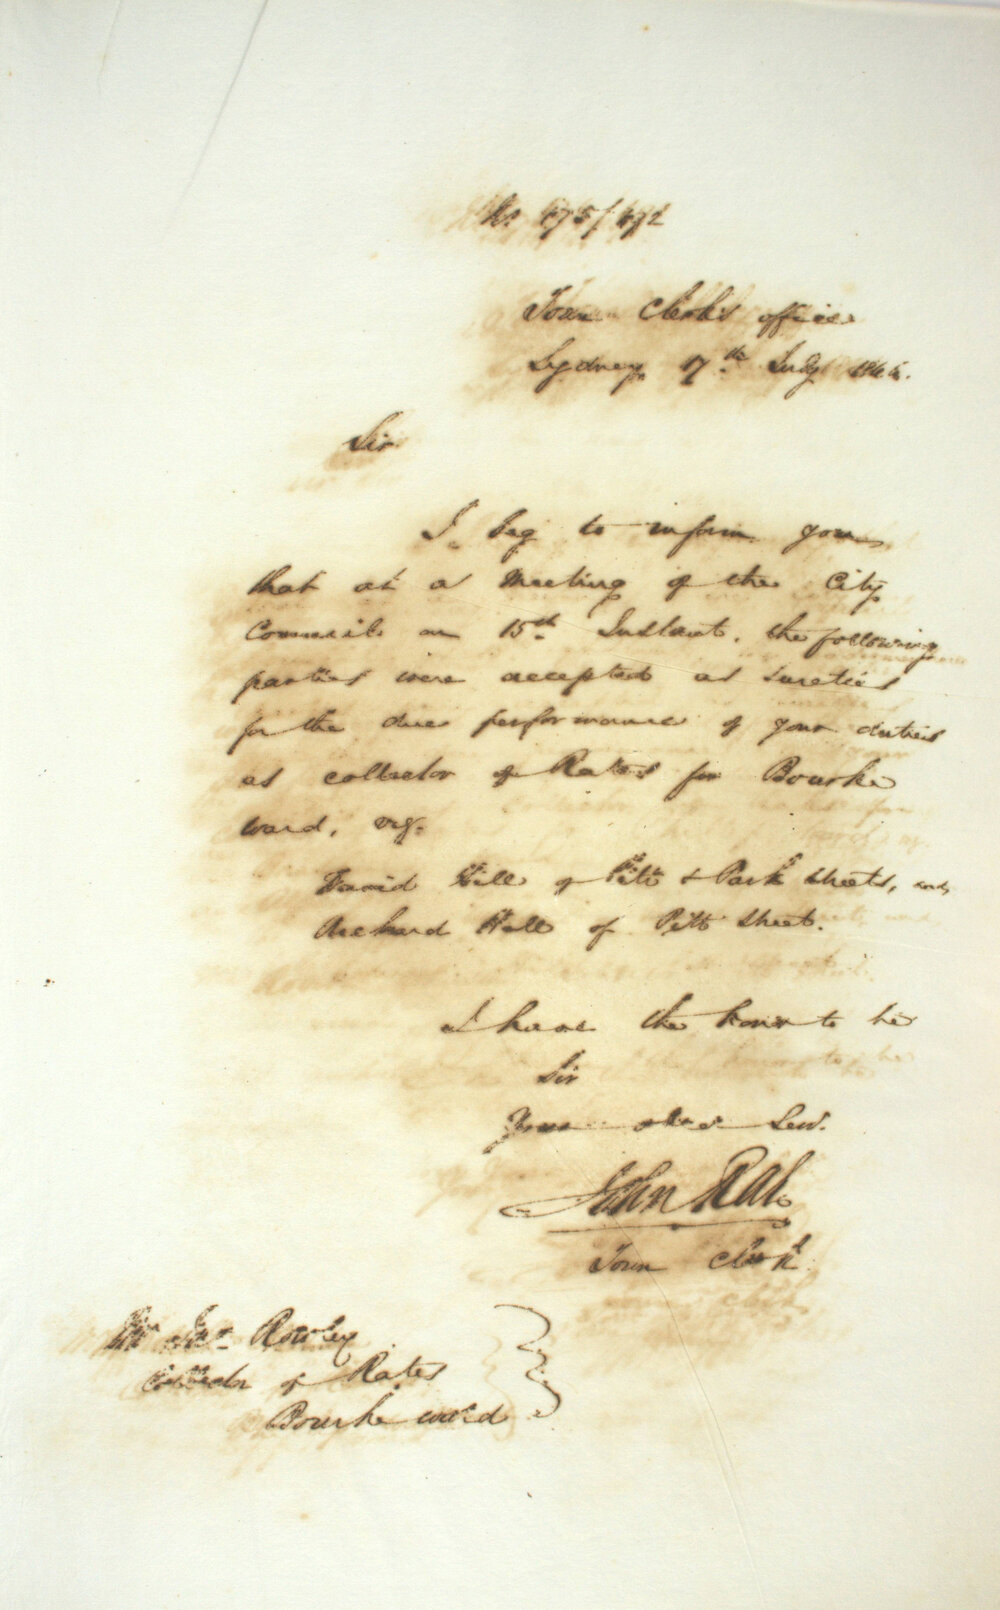 No 475/472
Town Clerk's office
Sydney 17th July
Sir
I beg to inform you
that at a Meeting of the City
Council on 15th Instant, the following
parties were accepted as sureties
for the due performance of your duties
as collector of Rates for Bourke
ward, viz.
David Hill of Pitt & Park Streets, and
Richard Hall of Pitt Street.
I have the honor to be
Sir
Your obdt Serv.
John Rae
Town Clerk
Mr Jno. Rowley
Collector of Rates
Bourke ward